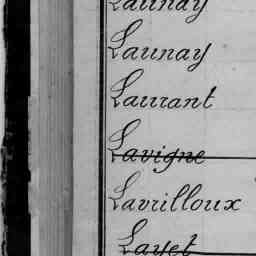 Launay
Launay
Laurant
Lavigne
Lavrilloux
Layet